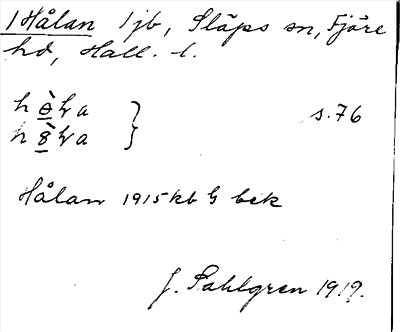 1 Hålan 1 jb, Släps sn, Fjäre
hd, Hall. l.
s. 76
Hålan 1915 kb G bek
J. Sahlgren 1919.